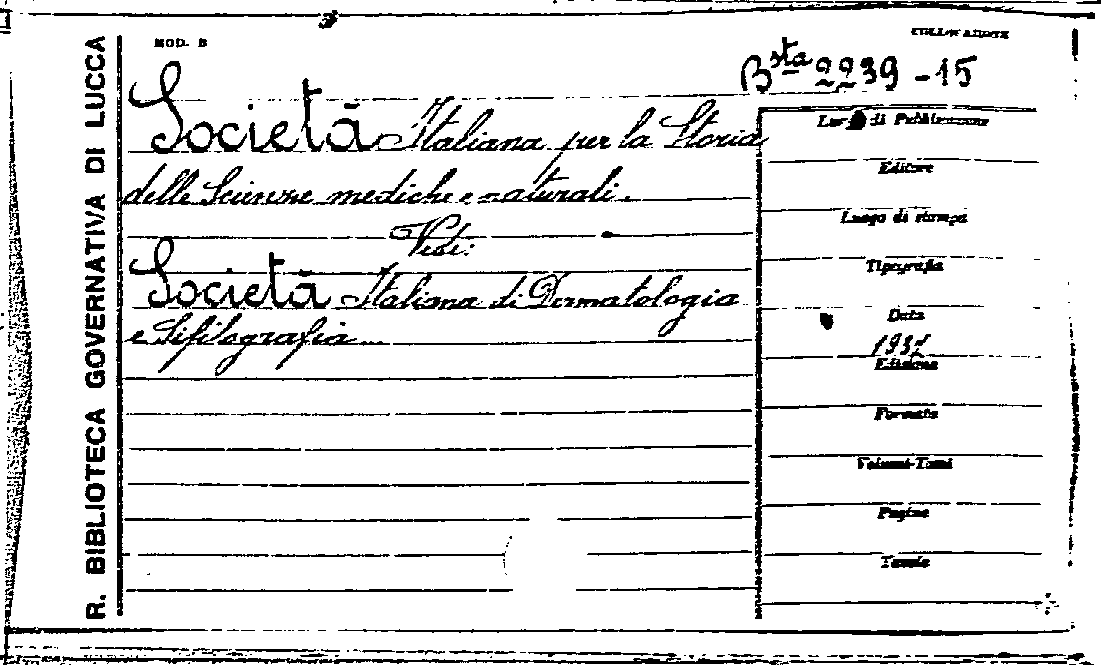 MOD. B
COLLOCAZIONE
Bsta 2239-15
R. BIBLIOTECA GOVERNATIVA DI LUCCA
Società Italiana per la Storia
delle Scienze mediche e naturali.
Vedi:
Società Italiana di Dermatologia
e Sifilografia...
Luogo di Pubblicazione
Editore
Luogo di stampa
Tipografia
Data
193
Edizione
Formato
Volumi-Tomi
Pagine
Tavole